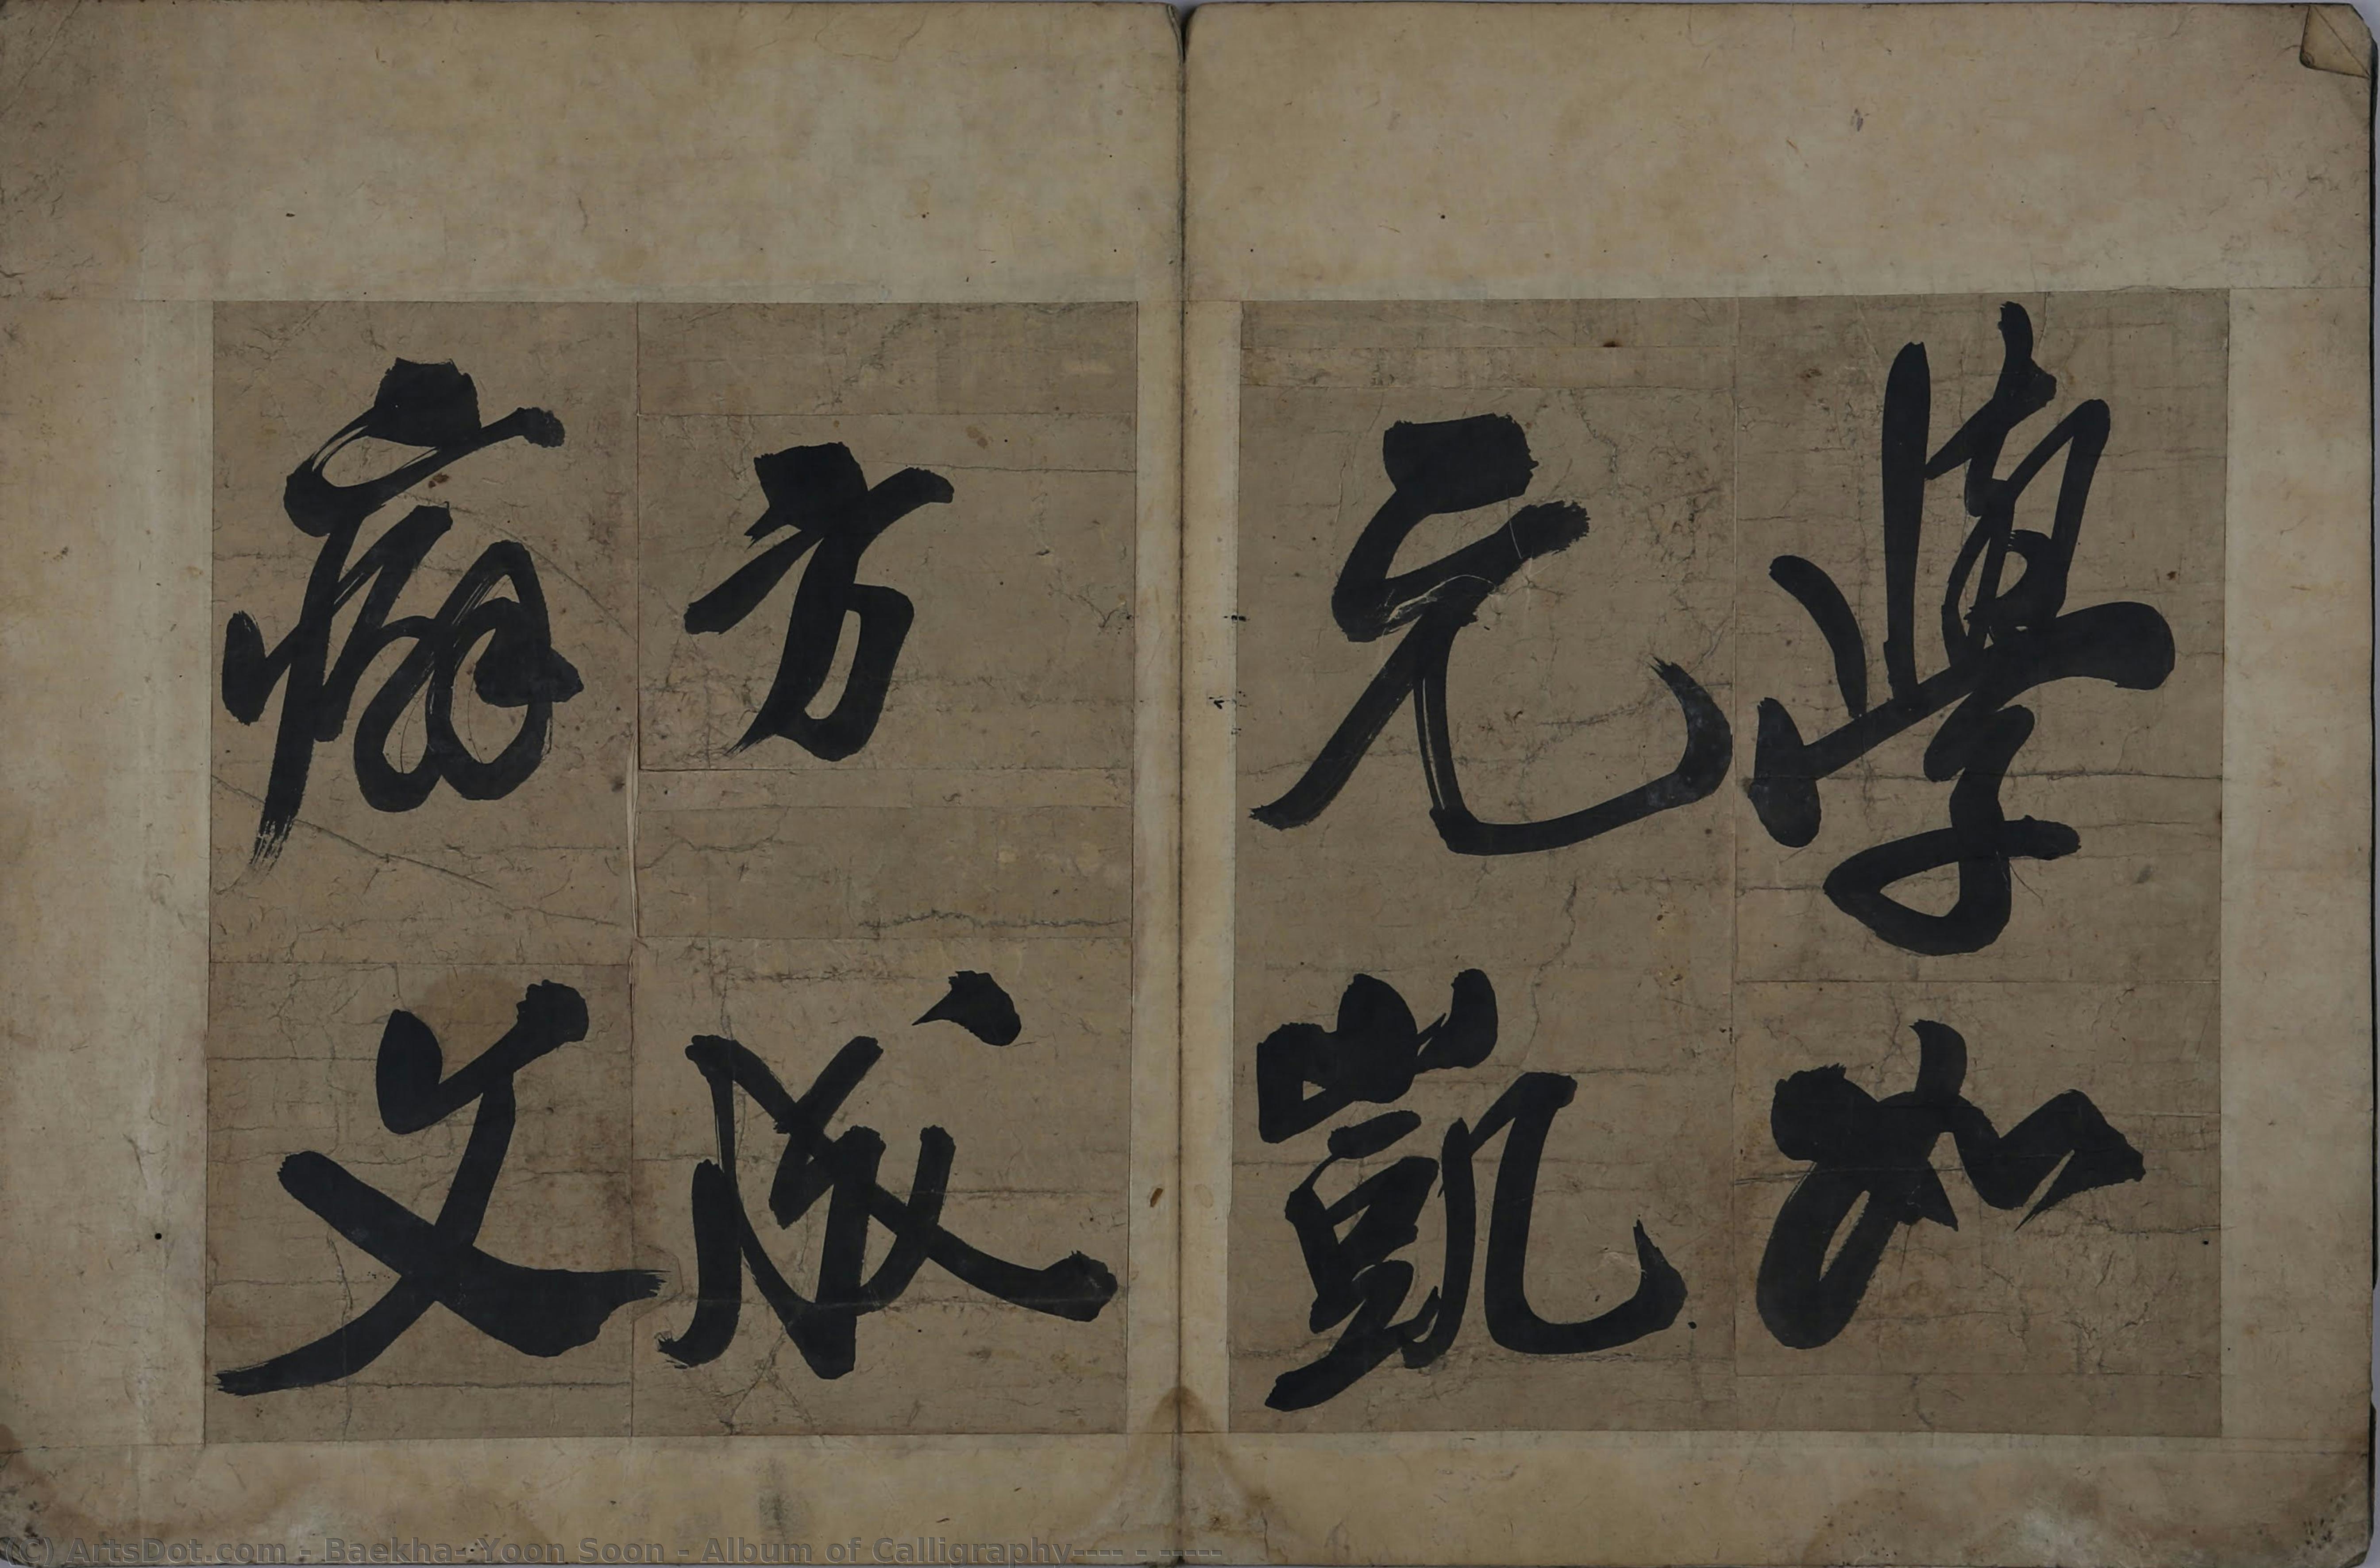 學如
元凱
方成
癖文
(c) ArtsDot.com - Baekha- Yoon Soon - Album of Calligraphy---- - -----